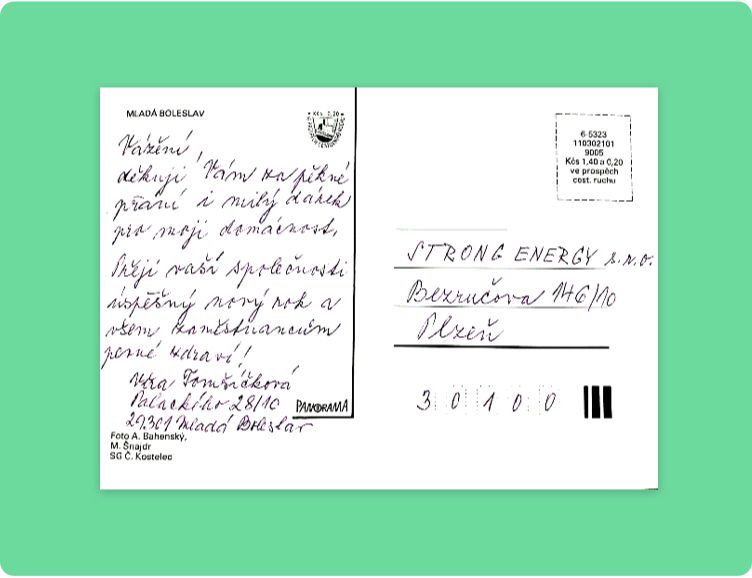 MLADÁ BOLESLAV
Kčs 1,20
Vážení,
děkuji Vám za pěkné
přání i milý dárek
pro moji domácnost.
Přeji vaší společnosti
úspěšný nový rok a
všem zaměstnancům
pevné zdraví!
Věra Tomšíčková
Palackého 28/10
29301 Mladá Boleslav
PANORAMA
Foto A. Bahenský,
M. Šnajdr
SG Č. Kostelec
6-5323
110302101
9005
Kčs 1,40 a 0,20
ve prospěch
cest. ruchu
STRONG ENERGY s.r.o.
Bezručova 146/10
Plzeň
3 0 1 0 0